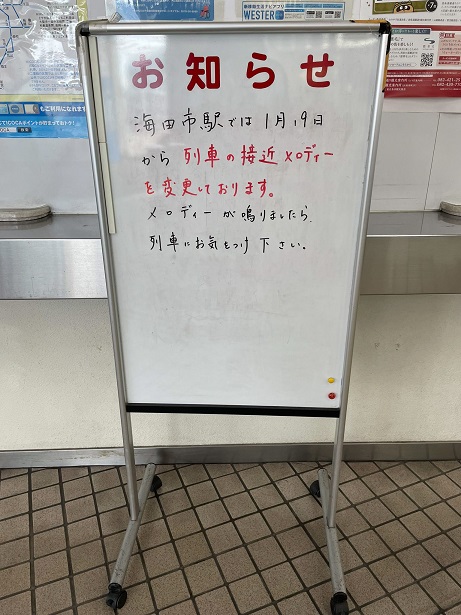 お知らせ
海田市駅では1月19日
から列車の接近メロディー
を変更しております。
メロディーが鳴りましたら、
列車にお気をつけ下さい。
WESTER
もご利用になれます